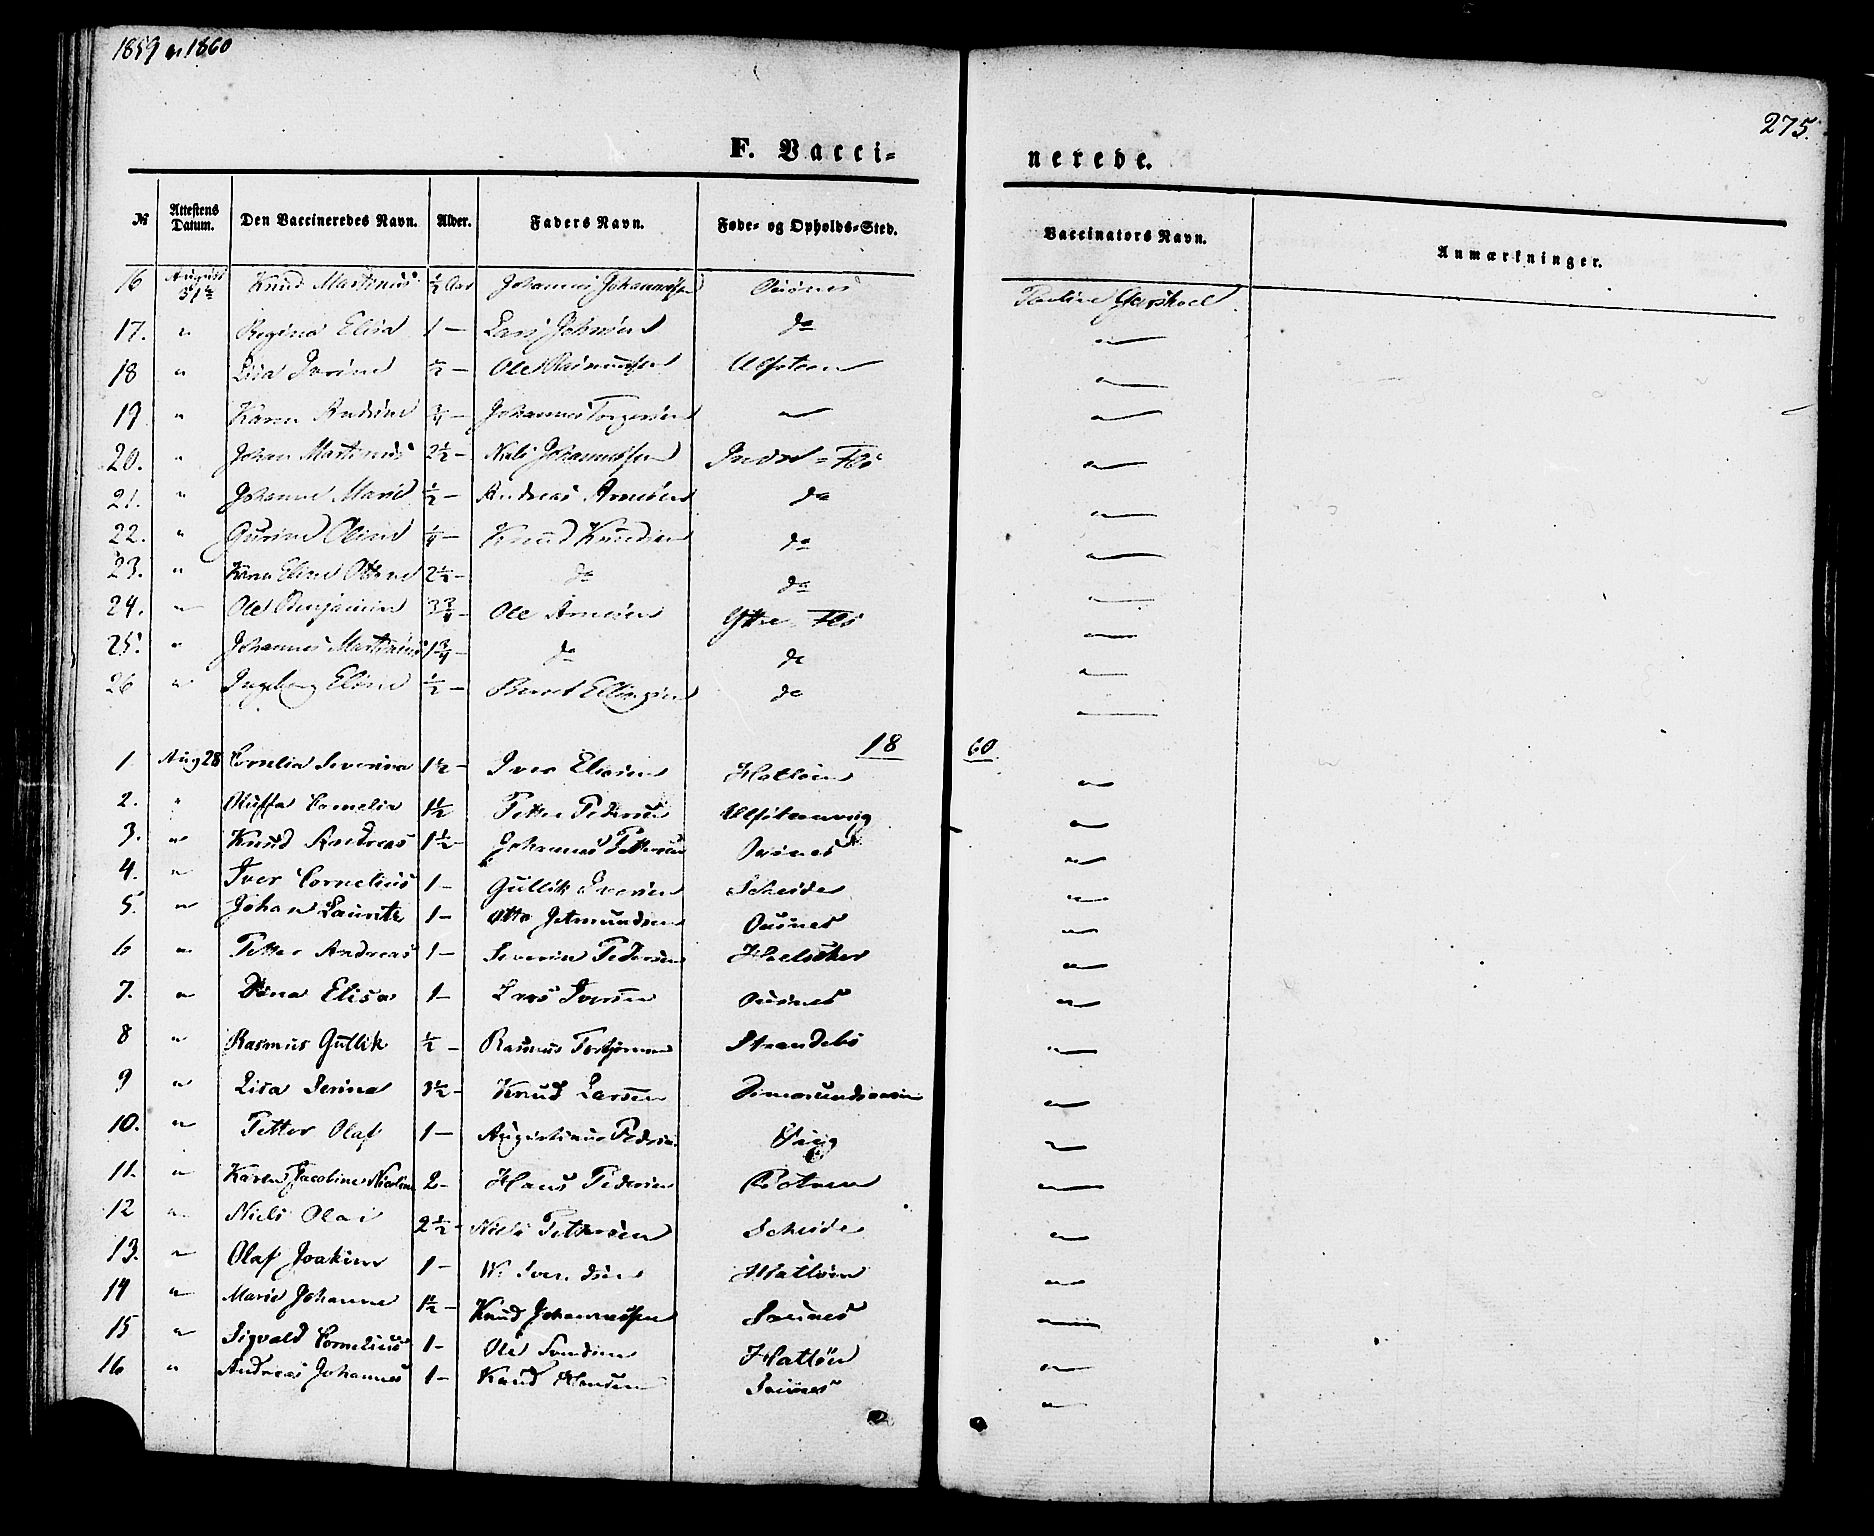 1859 & 1860
275.
F. Vacci- nerede.
№ Attestens Datum. Den Vaccineredes Navn. Alder. Faders Navn. Føde- og Opholds-Sted. Vaccinators Navn. Anmærkninger.
16 August 31te Knud Martinus ½ Aar Johannes Johannessen
17. " Regine Elisa 1 — Lars Johnsen do "
18 " Lisa Ivrine ½ — Ole Rasmussen Ulfsteen "
19 " Karen Andrine ¾ — Johannes Torgersen " "
20. " Johan Martinus 2½ — Nils Johannessen Indre = Flö "
21. " Johanne Marie ½ — Andreas Arnesen do "
22. " Gurine Oline ¼ — Knud Knudsen do "
23. " Karen Eline Ottine 2½ — do do "
24. " Ole Benjamin 3¾ — Ole Arnesen Yttre Flö "
25. " Johannes Martinus 1¾ — do do "
26 " Ingeborg Eline ½ — Bernt Ellingsen do "
18 60
1. Aug 28 Cornelia Severina 1½ — Iver Elison Hatløen "
2. " Oluffa Cornelia 1½ Petter Pedersen Ulfsteenvig "
3. " Knud Andreas 1½ — Johannes Pettersen "
4. " Iver Cornelius 1 — Gullik Iversen Scheide "
5. " Johan Lauritz 1 — Otto Jetmundsen "
6 " Petter Andreas 1 — Severin Pedersen "
7. " Elisa 1 — Lars Iversen "
8 " Rasmus Gullik ½ — Rasmus Strandebö "
9 " Lisa Serina 3½ — Knud Larsen "
10. " Petter Olaf 1 — Augustinus Pedersen "
11. " Karen Jacobine Nicoline 2 — Hans Pedersen "
12 " Niels Olai 2½ — Niels Pettersen Scheide "
13. " Olaf Joakim 1 — Svendsen Hatløen "
14 " Marie Johanne 1½ — Knud Johannessen "
15 " Sigvald Cornelius 1 — Ole Hatlöen "
16 " Andreas Johannes 1 — Knud "